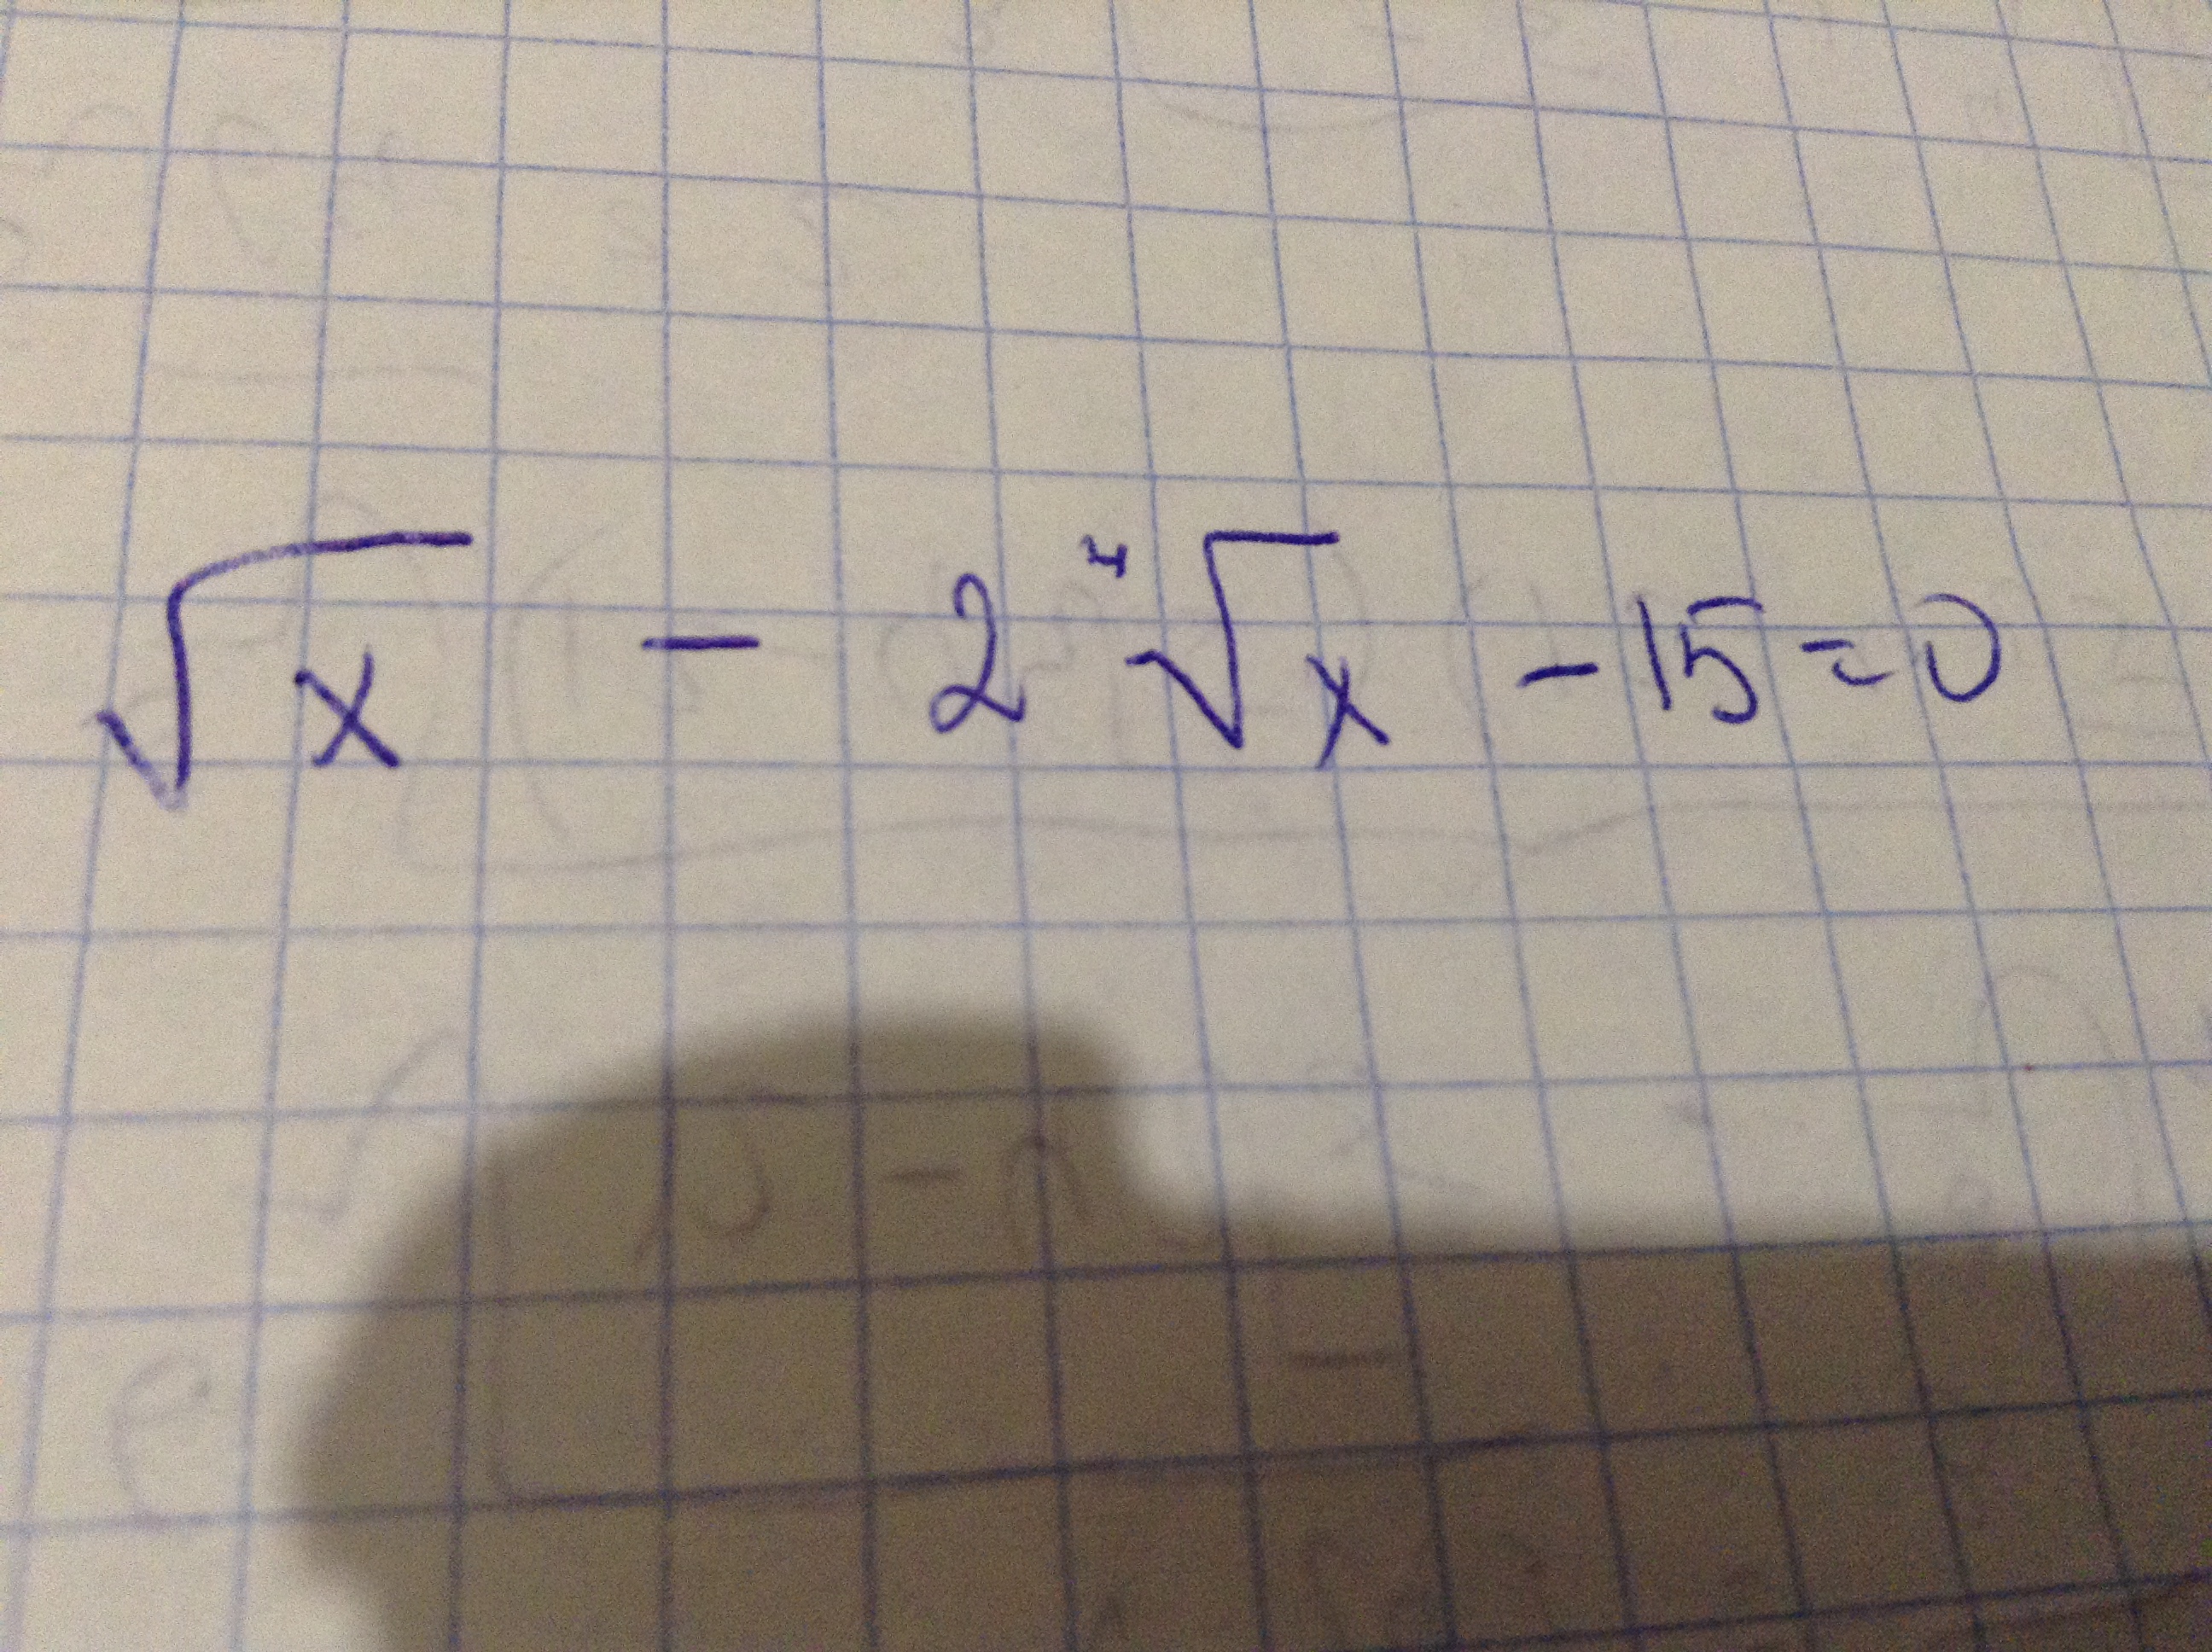 √x - 2 ⁴√x - 15 = 0